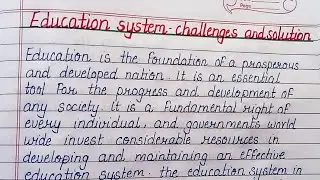 Education system challenges and solution
Education is the foundation of a prosperous
and developed nation. it is an essential
tool for the progress and development of
any society it is a fundamental right of
every individual, and governments world
wide invest considerable resources in
developing and maintaining an effective
education system. the education system in